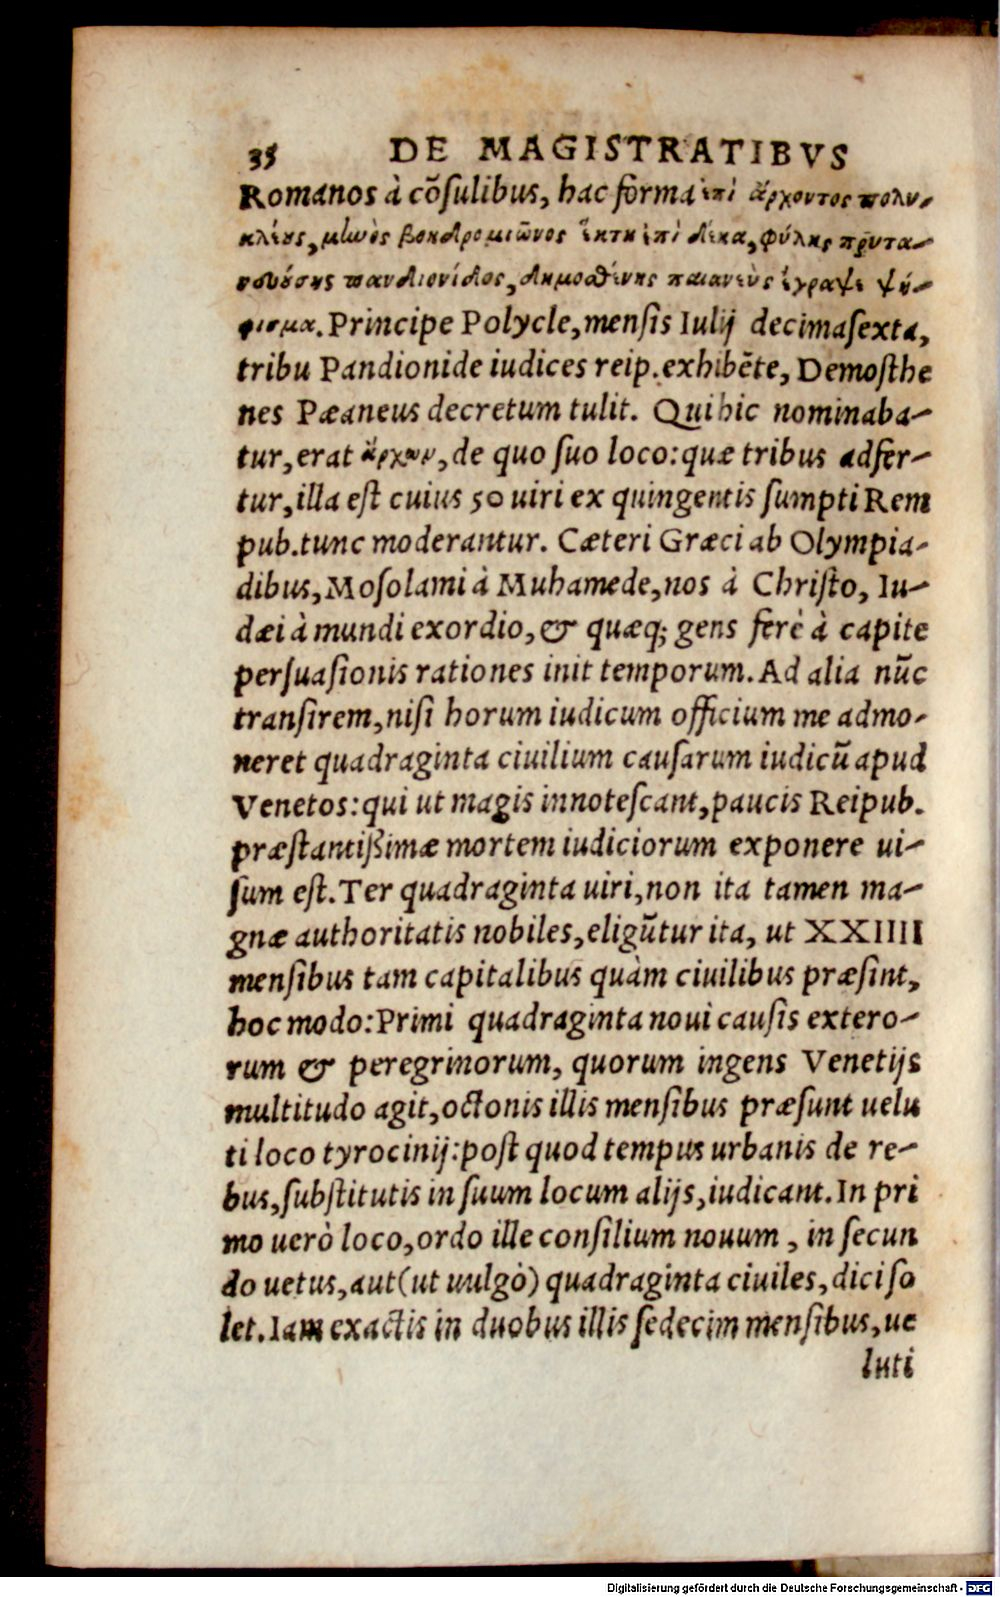 35 DE MAGISTRATIBVS
Romanos à cõsulibus, hac forma ἐπὶ ἄρχοντος πολυ-
κλέους, μηνὸς βοηδρομιῶνος ἕκτη ἐπὶ δέκα, φύλης πρυτα-
νευούσης πανδιονίδος, δημοσθένης παιανιεὺς ἔγραψε ψή-
φισμα. Principe Polycle, mensis Iulij decimasexta,
tribu Pandionide iudices reip. exhibẽte, Demosthe
nes Pæaneus decretum tulit. Qui hic nominaba-
tur, erat ἄρχων, de quo suo loco: quæ tribus adfer-
tur, illa est cuius 50 uiri ex quingentis sumpti Rem
pub. tunc moderantur. Cæteri Græci ab Olympia-
dibus, Mosolami à Muhamede, nos à Christo, Iu-
dæi à mundi exordio, & quæq; gens ferè à capite
persuasionis rationes init temporum. Ad alia nũc
transirem, nisi horum iudicum officium me admo-
neret quadraginta ciuilium causarum iudicũ apud
Venetos: qui ut magis innotescant, paucis Reipub.
præstantißimæ mortem iudiciorum exponere ui-
sum est. Ter quadraginta uiri, non ita tamen ma-
gnæ authoritatis nobiles, eligũtur ita, ut XXIIII
mensibus tam capitalibus quàm ciuilibus præsint,
hoc modo: Primi quadraginta noui causis extero-
rum & peregrinorum, quorum ingens Venetijs
multitudo agit, octonis illis mensibus præsunt uelu
ti loco tyrocinij: post quod tempus urbanis de re-
bus, substitutis in suum locum alijs, iudicant. In pri
mo uerò loco, ordo ille consilium nouum, in secun
do uetus, aut (ut uulgò) quadraginta ciuiles, dici so
let. Iam exactis in duobus illis sedecim mensibus, ue
luti
Digitalisierung gefördert durch die Deutsche Forschungsgemeinschaft - DFG